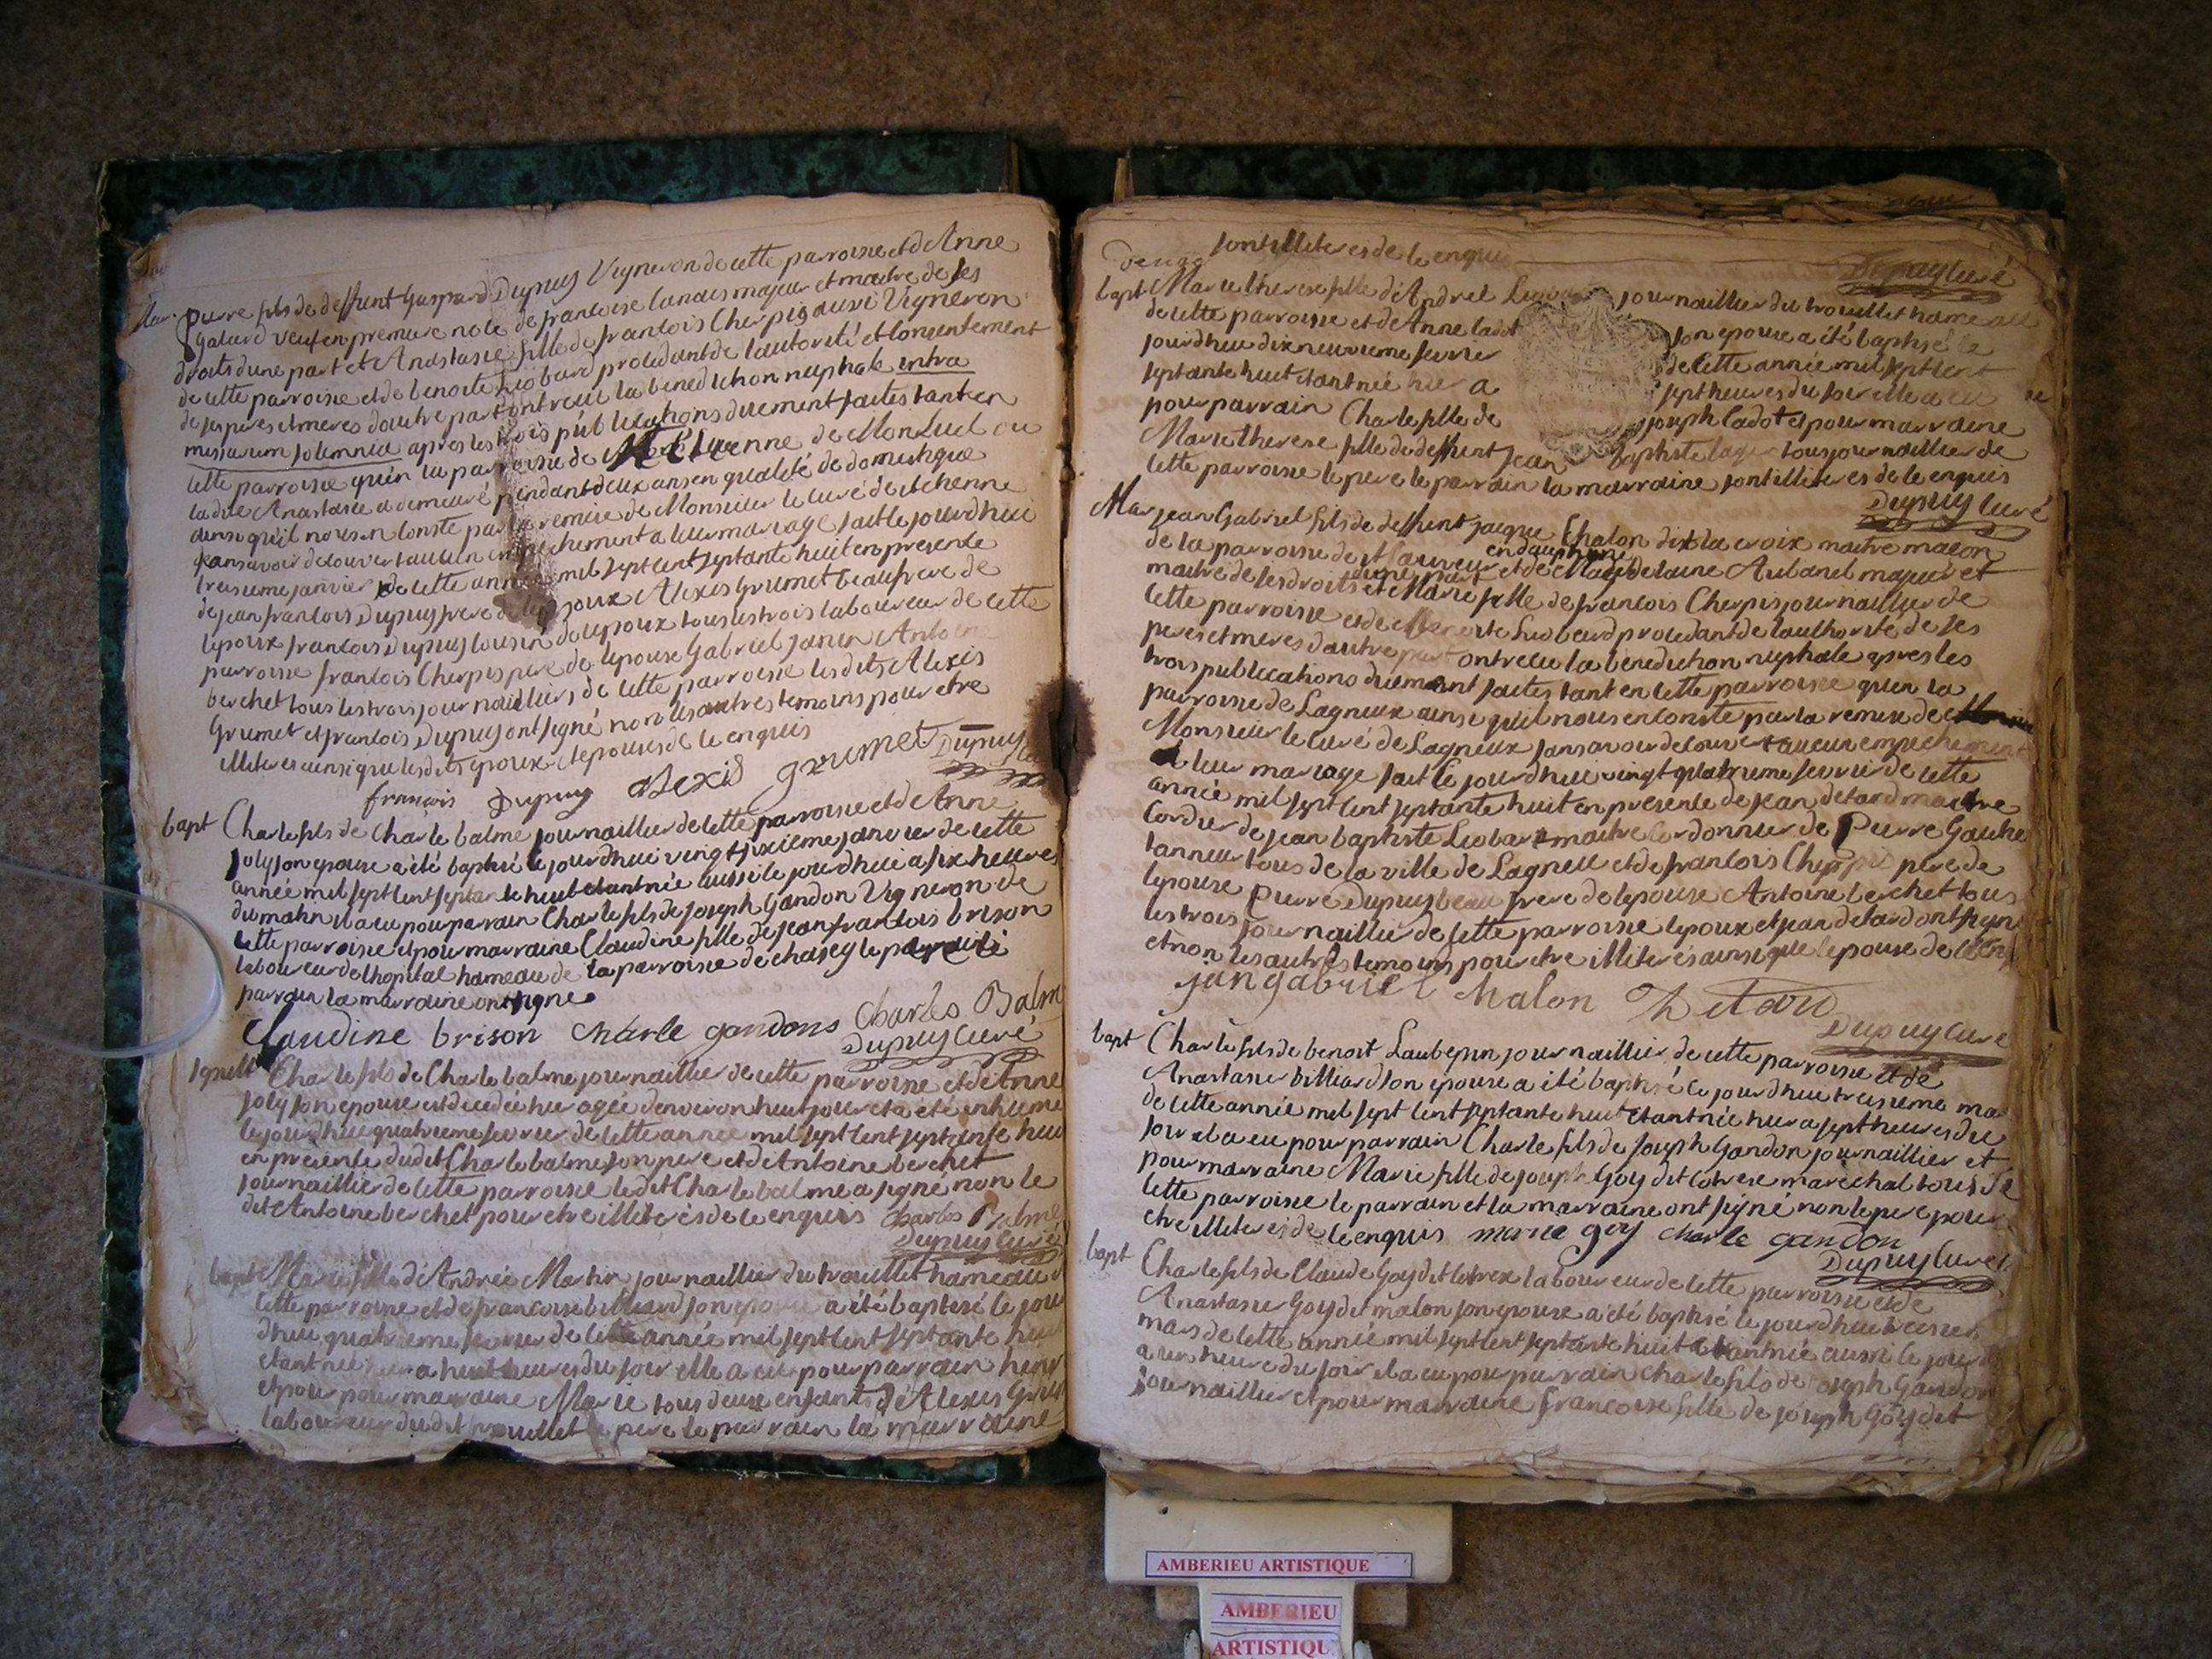 Mar. pierre fils de deffunt Gaspard Dupuy Vigneron de cette parroisse et de Anne
Galard veuf en premiere noce de francoise lanais majeur et maitre de ses
droits dune part et Anastasie fille de francois Cherpis aussi Vigneron
de cette parroisse et de benoite Liobard procedant de lautorité et consentement
de ses peres et meres dautre part ont recu la benediction nuptiale intra
missarum solemnia apres les trois publications duement faites tant en
cette parroisse qu'en la parroisse de St Etienne de Monluel ou
ladite Anastasie a demeuré pendant deux ans en qualité de domestique
ainsi qu'il nous en conste par la remise de Monsieur le curé de st chenne
sans avoir decouvert aucun empechement a leur mariage fait le jourdhui
treisieme janvier de cette année mil sept cent septante huit en presence
de jean francois Dupuy frere de lepoux Alexis Grumet beaufrere de
lepoux francois Dupuy cousin de lepoux tous les trois laboureur de cette
parroisse francois Cherpis pere de lepouse Gabriel janin Antoine
berchet tous les trois journailliers de cette parroisse lesdits Alexis
Grumet et francois Dupuy ont signé non les autres temoins pour etre
illiteres ainsi que lesdits epoux et epouse de ce enquis
françois Dupuy alexis grumet Dupuy
bapt Charle fils de Charle balme journaillier de cette parroisse et de Anne
joly son epouse a été baptisé le jourdhui vingt sixieme janvier de cette
année mil sept cent septante huit etant née aussi le jourdhui a six heures
du matin il a eu pour parrain Charle fils de joseph Gandon Vigneron de
cette parroisse et pour marraine Claudine fille de jean francois brison
laboureur de lhopital hameau de la parroisse de chasey le pere le
parrain la marraine ont signe
Claudine brison charle gandons Charles Balm
Dupuy curé
Charle fils de Charle balme journaillier de cette parroisse et de Anne
joly son epouse est decedé hier agée denviron huit jour et a eté inhumé
le jourdhui quatrieme fevrier de cette année mil sept cent septante hui
en presence dudit Charle balme son pere et de Antoine berchet
journaillier de cette parroisse ledit Charle balme a signé non le
dit Antoine berchet pour etre illiteres de ce enquis Charles Balme
Dupuy curé
bapt Marie fille d'Andrée Martin journaillier du trouillet hameau d
cette parroisse et de francoise billiard son epouse a été baptisé le jour
dhui quatrieme fevrier de cette année mil sept cent septante huit
etant née hier a huit heures du soir elle a eu pour parrain henri
et pour marraine Marie tous deux enfants d'Alexis Grum
laboureur dudit trouillet le pere le parrain la marraine
sont illiteres de ce enquis
Dupuy curé
bapt Marie therese fille d'Andrée journaillier du trouillet hameau
de cette parroisse et de Anne cadot son epouse a été baptisé le
jourdhui dix neuvieme fevrier de cette année mil sept cent
septante huit etant née hier a sept heures du soir elle a eu
pour parrain Charle fille de joseph Cadot et pour marraine
Marie therese fille de deffunt jean baptiste tous journaillier de
cette parroisse le pere le parrain la marraine sont illiteres de ce enquis
Dupuy curé
Mar jean Gabriel fils de deffunt jacque Chalon dit la croix maitre macon
de la parroisse de st Sauveur en dauphiné et de Magdelaine Aubanel majeur et
maitre de ses droits dune part et Marie fille de francois Cherpis journaillier de
cette parroisse et de benoite Liobard procedant de lauthorité de ses
peres et meres dautre part ont recu la benediction nuptiale apres les
trois publications duement faites tant en cette parroisse qu'en la
parroisse de Lagnieux ainsi quil nous en conste par la remise de
Monsieur le curé de Lagnieux sans avoir decouvert aucun empechement
a leur mariage fait le jourdhui vingt quatrieme fevrier de cette
année mil sept cent septante huit en presence de jean detard maitre
Cordier de jean baptiste Liobart maitre cordonnier de Pierre Gauthe
tanneur tous de la ville de Lagnieu et de francois Cherpis pere de
lepouse pierre Dupuy beau frere de lepouse Antoine berchet tous
les trois journaillier de cette parroisse lepoux et jean detard ont signé
et non les autres temoins pour etre illiteres ainsi que lepouse de ce enq
jan gabriel chalon Detard
Dupuy curé
bapt Charle fils de benoit Laubepin journaillier de cette parroisse et de
Anastasie billiard son epouse a été baptisé le jourdhui treisieme mar
de cette année mil sept cent septante huit etant née hier a sept heures du
soir il a eu pour parrain Charle fils de joseph Gandon journaillier et
pour marraine Marie fille de joseph Goy dit marechal tous de
cette parroisse le parrain et la marraine ont signé non le pere pour
etre illiteres de ce enquis marie goy charle gandon
Dupuy curé
bapt Charle fils de Claude Goy dit laboureur de cette parroisse et de
Anastasie Goy dit malon son epouse a été baptisé le jourdhui treisieme
mars de cette année mil sept cent septante huit etant née aussi le jour
a une heure du soir il a eu pour parrain charle fils de joseph Gandon
journaillier et pour marraine francoise fille de joseph Goy dit
AMBERIEU ARTISTIQUE
AMBERIEU
ARTISTIQU